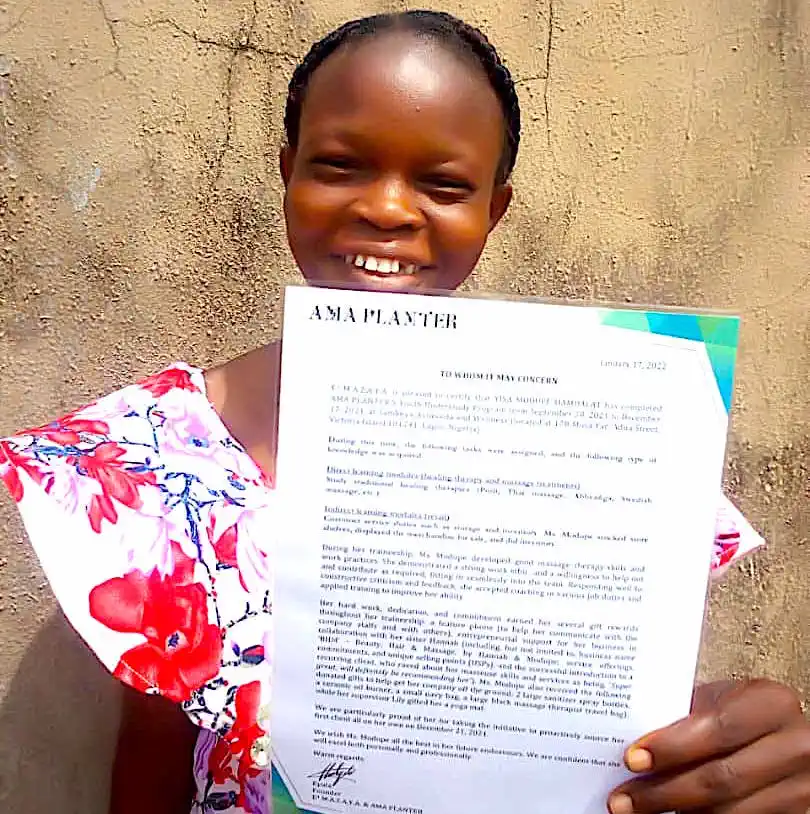 AMA PLANTER
January 17, 2022
TO WHOM IT MAY CONCERN
E³ M.A.Z.A.Y.A. is pleased to certify that YISA MODUPE DAMILAT has completed
AMA PLANTER'S Youth Understudy Program from September 20, 2021 to December
17, 2021, at Ayurveda and Wellness (located at Adua Street,
Victoria Island Lagos, Nigeria).
During this time, the following tasks were assigned, and the following type of
knowledge was acquired.
Direct learning modules (healing therapy and massage treatments)
Study traditional healing therapies (Potli, Thai massage, Abhyanga, Swedish
massage, etc.)
Indirect learning modules (retail)
Customer service duties such as storage and inventory. Ms. Modupe stocked store
shelves, displayed the merchandise for sale, and did inventory.
During her traineeship, Ms. Modupe developed good massage therapy skills and
work practices. She demonstrated a strong work ethic, and a willingness to help out
and contribute as required, fitting in seamlessly into the team. Responding well to
constructive criticism and feedback, she accepted coaching in various job duties and
applied training to improve her ability.
Her hard work, dedication, and commitment earned her several gift rewards
throughout her traineeship: a feature phone (to help her communicate with the
company staffs and with others), entrepreneurial support for her business in
collaboration with her sister Hannah (including, but not limited to, business name
- Beauty, Hair & Massage, by Hannah & Modupe; service offerings,
commitments, and unique selling points (USPs), and the successful introduction to a
recurring client, who raved about her masseuse skills and services as being, "Super
great, will definitely be recommending her"). Ms. Modupe also received the following
donated gifts to help get her company off the ground: 2 large sanitizer spray bottles,
a ceramic oil burner, a small navy bag, a large black massage therapist travel bag),
while her supervisor Lily gifted her a yoga mat.
We are particularly proud of her for taking the initiative to proactively source her
first client all on her own on December 21, 2021.
We wish Ms. Modupe all the best in her future endeavours. We are confident that she
will excel both personally and professionally.
Warm regards,
Founder
E³ M.A.Z.A.Y.A. & AMA PLANTER